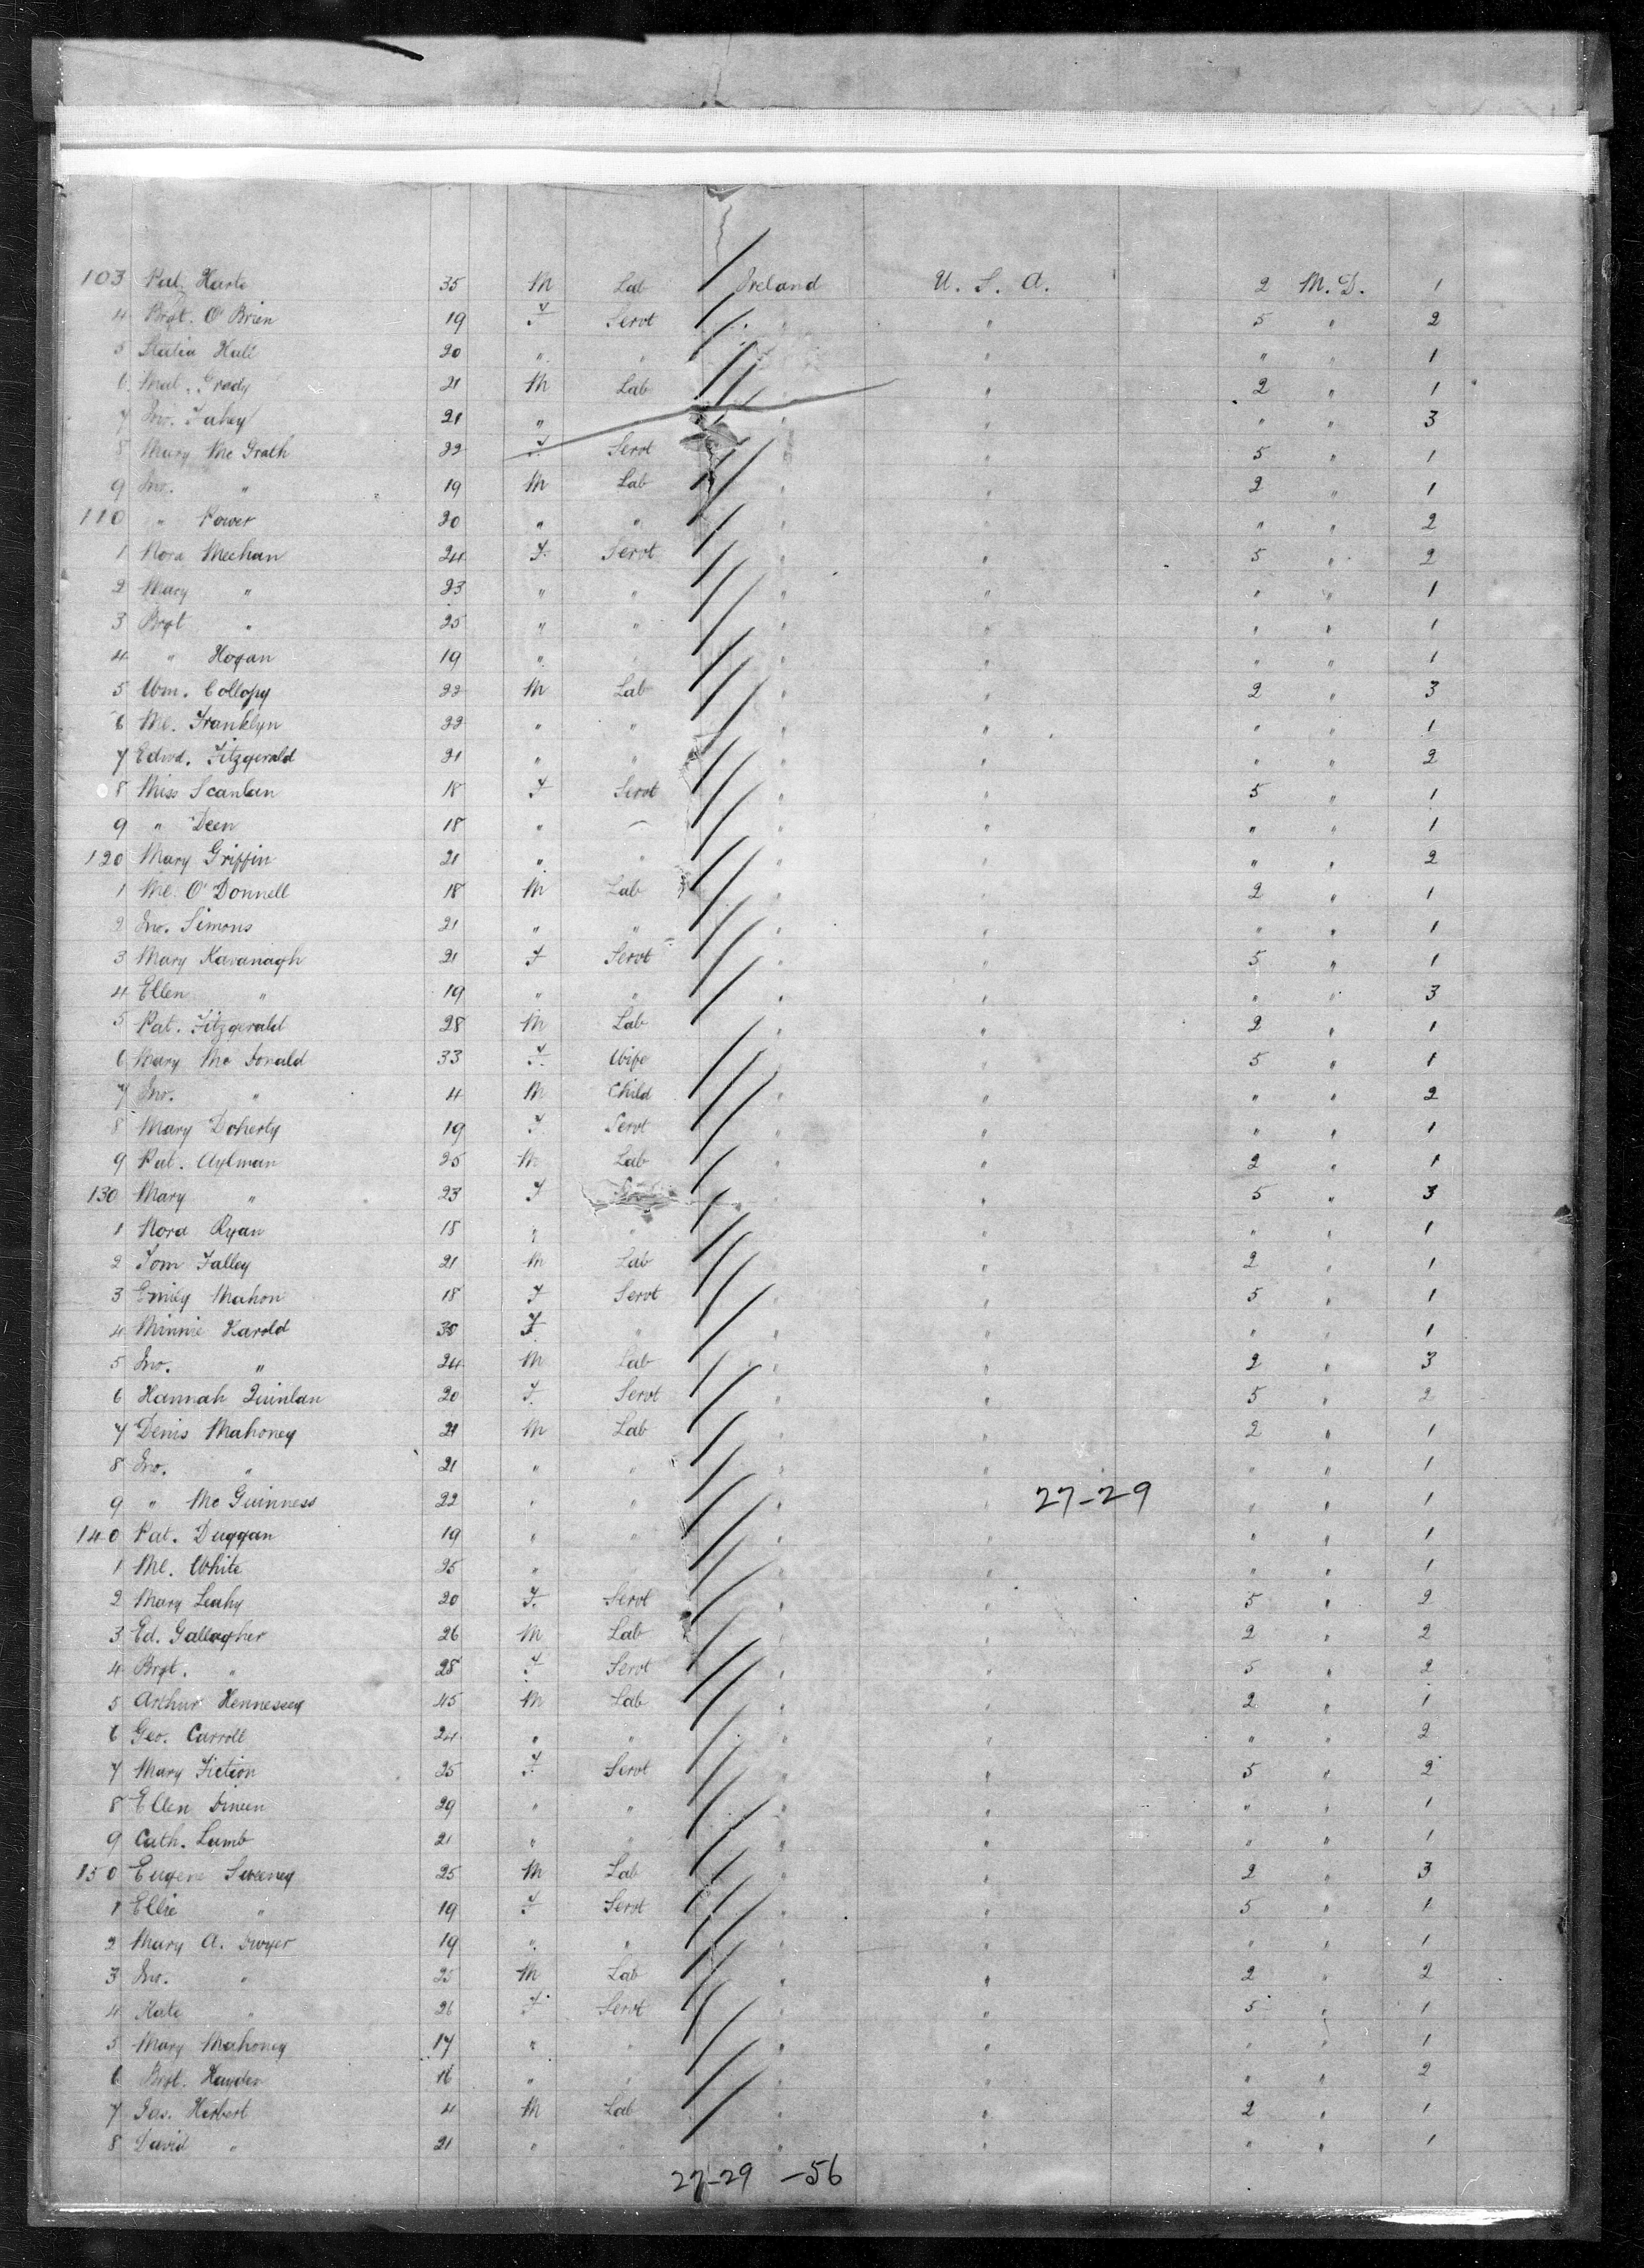 103 Pat. Harte 35 M Lab Ireland U. S. A. 2 M.D. 1
4 Brgt. O'Brien 19 F Servt " " 5 " 2
5 Statia Hall 20 " " " " " " 1
6 Mal. Grady 21 M Lab " " 2 " 1
7 Jno. Fahey 21 " " " " " 3
8 Mary Mc Grath 22 F Servt " " 5 " 1
9 Jno. " 19 M Lab " " 2 " 1
110 " Power 20 " " " " " " 2
1 Nora Meehan 24 F. Servt " " 5 " 2
2 Mary " 23 " " " " " " 1
3 Brgt " 25 " " " " " " 1
4 " Hogan 19 " " " " " " 1
5 Wm. Collopy 22 M Lab " " 2 " 3
6 Ml. Franklyn 22 " " " " " " 1
7 Edwd. Fitzgerald 21 " " " " " " 2
8 Miss Scanlan 18 F Servt " " 5 " 1
9 " Deen 18 " " " " " " 1
120 Mary Griffin 21 " " " " " " 2
1 Ml. O'Donnell 18 M Lab " " 2 " 1
2 Jno. Simons 21 " " " " " " 1
3 Mary Kavanagh 21 F Servt " " 5 " 1
4 Ellen " 19 " " " " " " 3
5 Pat. Fitzgerald 28 M Lab " " 2 " 1
6 Mary Mc Donald 33 F. Wife " " 5 " 1
7 Jno. " 4 M Child " " " " 2
8 Mary Doherty 19 F. Servt " " " " 1
9 Pat. Aylman 25 M Lab " " 2 " 1
130 Mary " 23 F " " 5 " 3
1 Nora Ryan 18 " " " " " " 1
2 Tom Falley 21 M Lab " " 2 " 1
3 Emily Mahon 18 F Servt " " 5 " 1
4 Minnie Harold 30 F. " " " " " 1
5 Jno. " 24 M Lab " " 2 " 3
6 Hannah Quinlan 20 F. Servt " " 5 " 2
7 Denis Mahoney 21 M Lab " " 2 " 1
8 Jno. " 21 " " " " " " 1
9 " Mc Guinness 22 " " " " 27-29 " " 1
140 Pat. Duggan 19 " " " " " " 1
1 Ml. White 25 " " " " " " 1
2 Mary Leahy 20 F. Servt " " 5 " 2
3 Ed. Gallagher 26 M Lab " " 2 " 2
4 Brgt. " 28 F Servt " " 5 " 2
5 Arthur Hennessey 45 M Lab " " 2 " 1
6 Geo. Carroll 24 " " " " " " 2
7 Mary Fiction 25 F Servt " " 5 " 2
8 Ellen Dineen 29 " " " " " " 1
9 Cath. Lamb 21 " " " " " " 1
150 Eugene Sweeney 25 M Lab " " 2 " 3
1 Ellie " 19 F Servt " " 5 " 1
2 Mary A. Dwyer 19 " " " " " " 1
3 Jno. " 25 M Lab " " 2 " 2
4 Kate " 26 F Servt " " 5 " 1
5 Mary Mahoney 17 " " " " " " 1
6 Brgt. Hayden 16 " " " " " " 2
7 Jas. Herbert 4 M Lab " " 2 " 1
8 David " 21 " " " " " " 1
27-29 -56